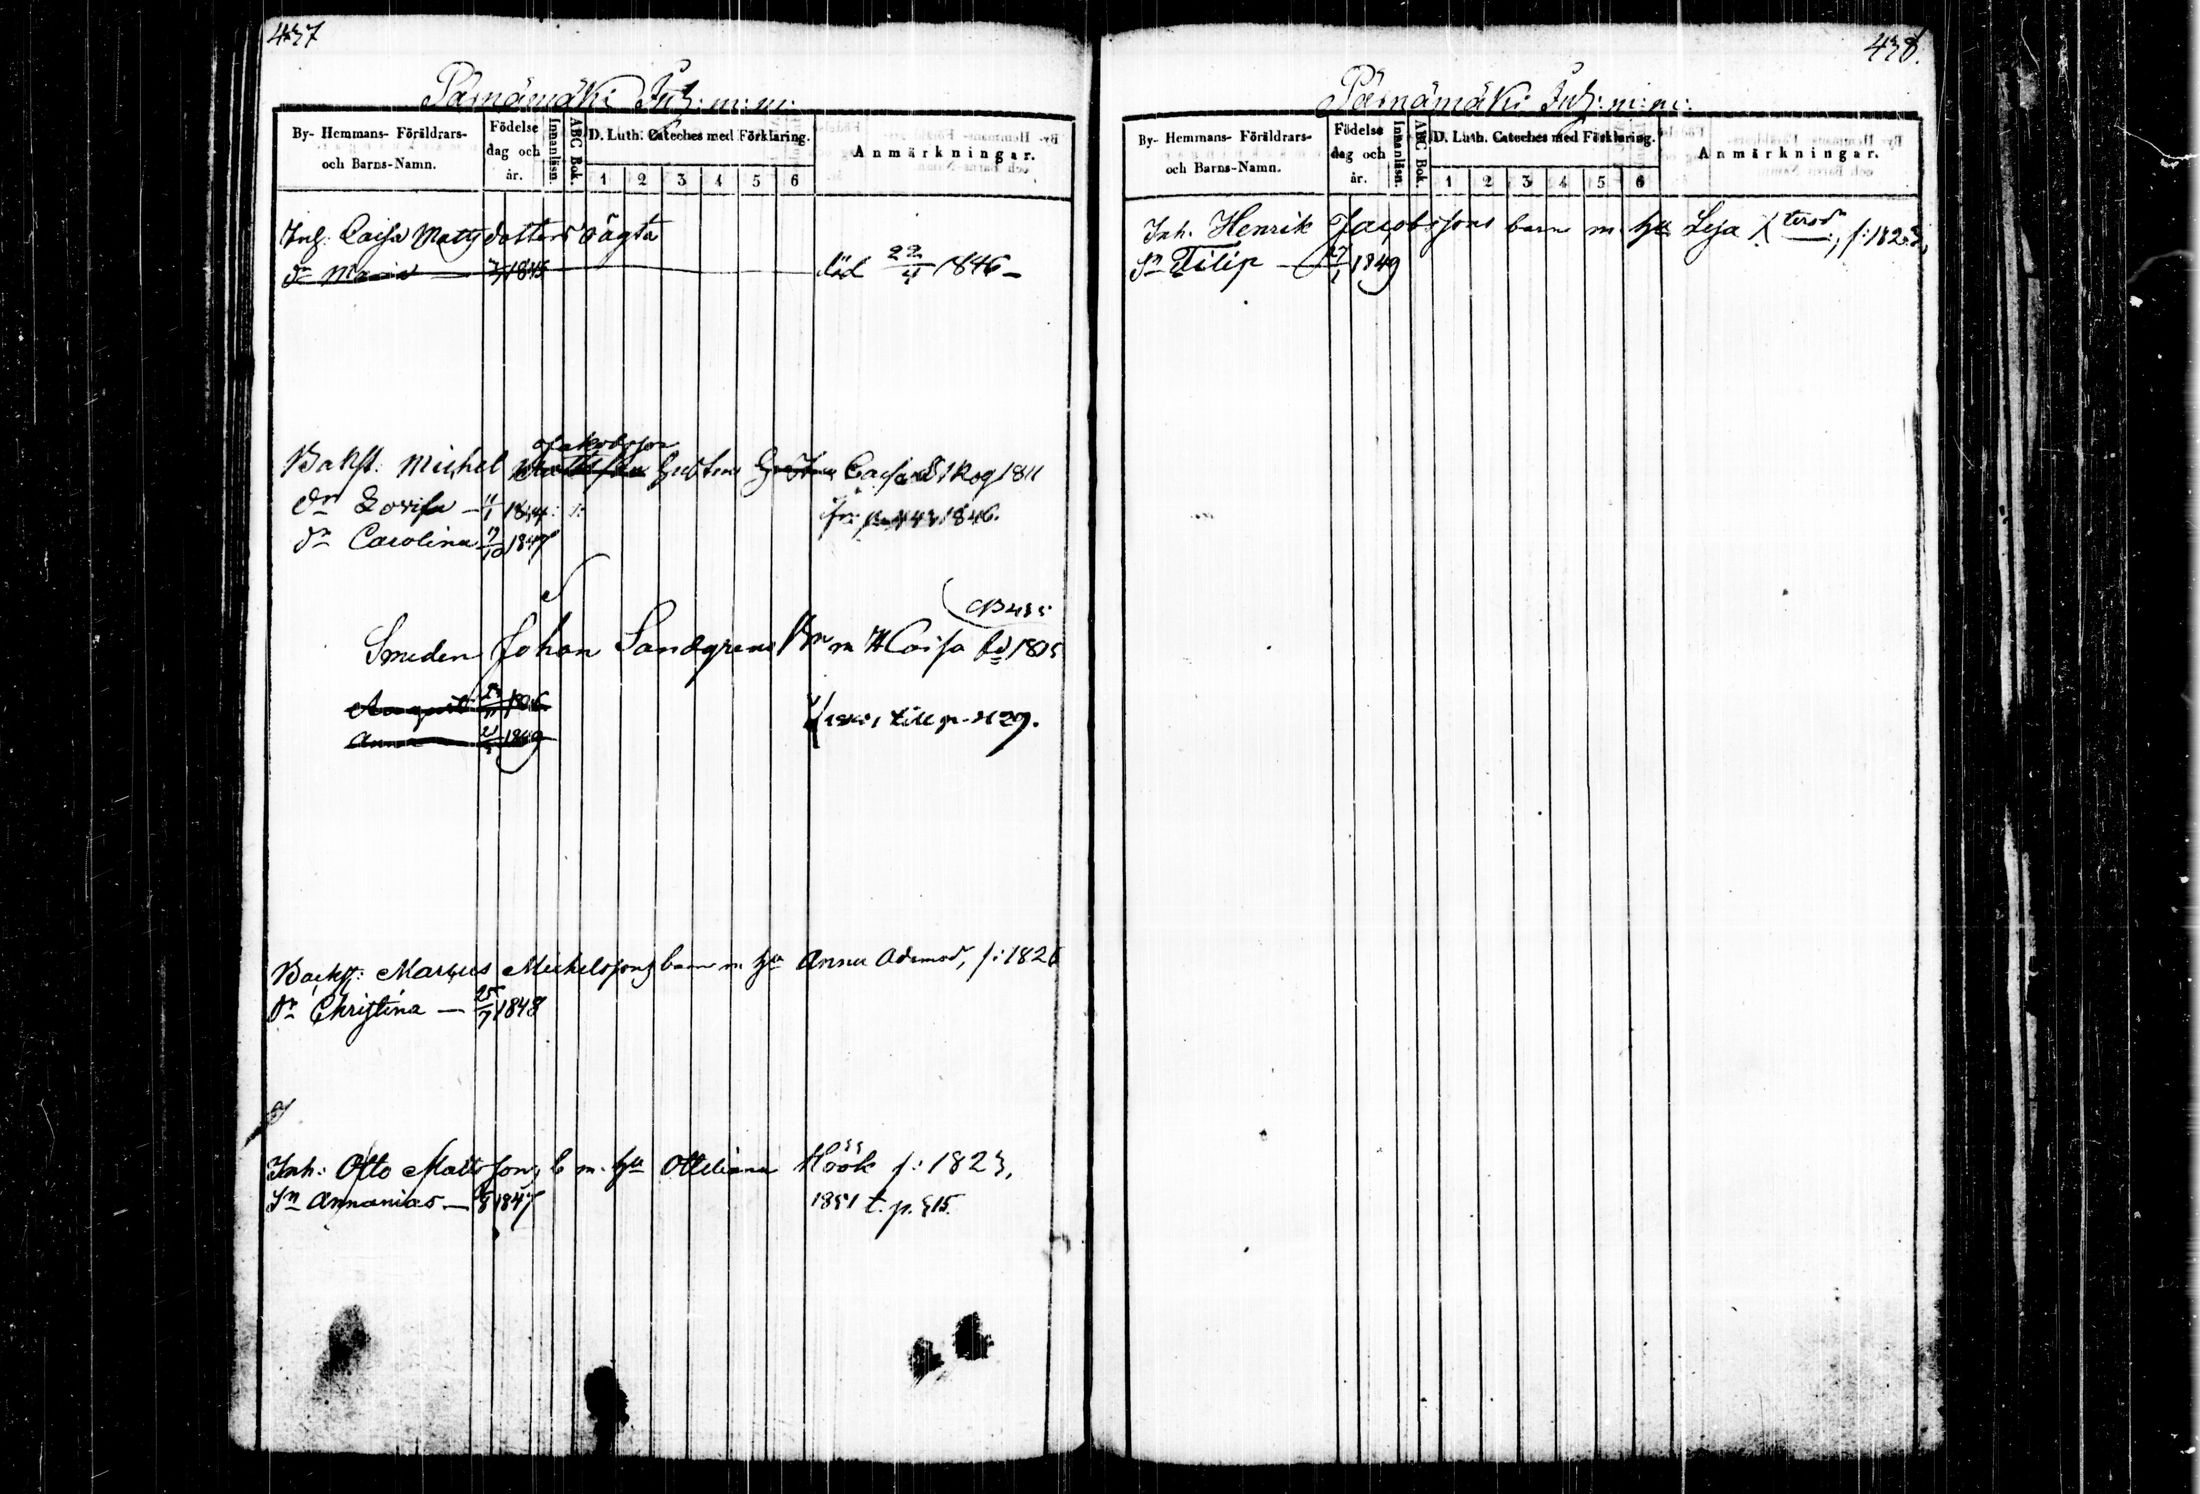 437
Pärnämäki Inh: m: m:
By- Hemmans- Föräldrars-
och Barns-Namn.
Födelse
dag och
år.
Innanläsn.
ABC Bok.
D. Luth. Cateches med Förklaring.
1 2 3 4 5 6
Anmärkningar.
Inh: Caisa Matts dotters oägta
Dr Maria 1845 död 22/4 1846
Jakobsson
Bakst: Michel Gustava Caisa Skog 1811
Dr Lovisa 11/1 1844 1846.
Dr Carolina 1847
Smeden Johan Sandgrens Bn m H Caisa fd 1805
August
Anna 1849 till p. 429.
Backst: Marcus Michelssons barn m. hu Anna Adamsd, f: 1826
Dr Christina — 25/7 1848
Inh: Otto Mattsson, b m. hu Ottiliana Höök f: 1823,
Sn Annanias — 1847 1851 t. p. 515.
438.
Pärnämäki Inh: m: m:
By- Hemmans- Föräldrars-
och Barns-Namn.
Födelse
dag och
år.
Innanläsn.
ABC Bok.
D. Luth. Cateches med Förklaring.
1 2 3 4 5 6
Anmärkningar.
Inh. Henrik Jacobssons barn m. hu Leja f: 1823,
Sn Filip — 27/1 1849